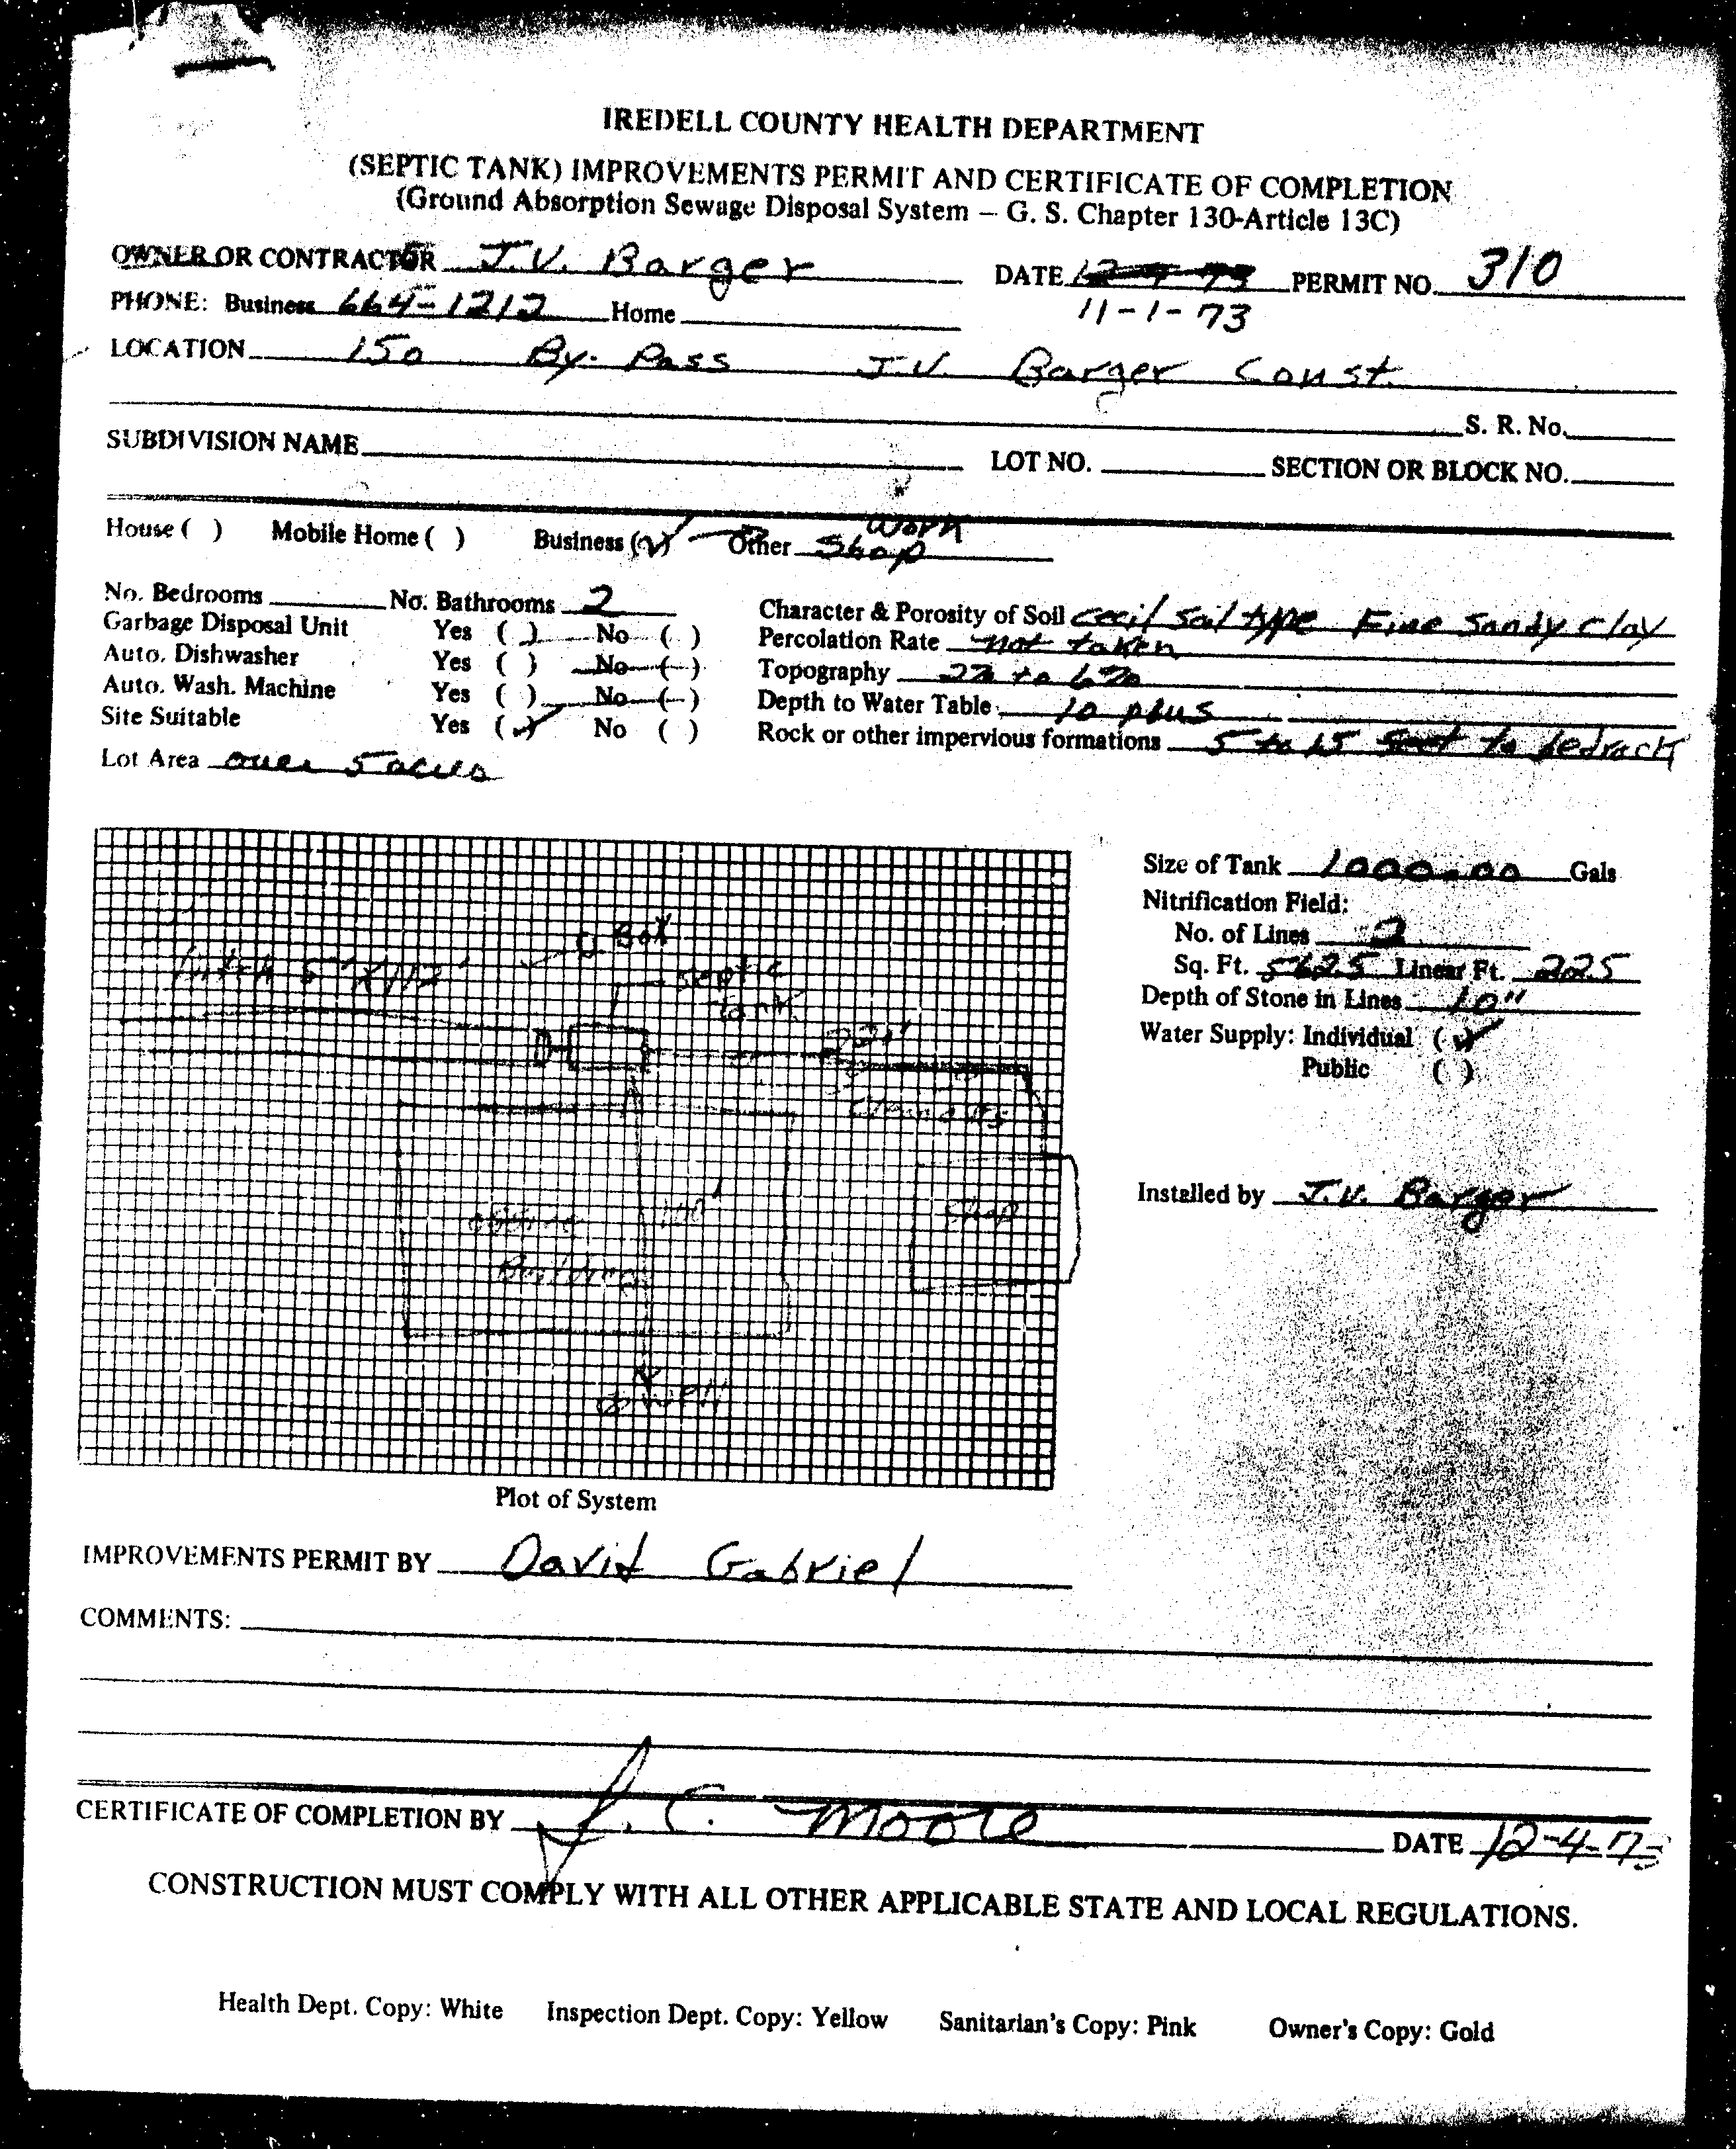 IREDELL COUNTY HEALTH DEPARTMENT
(SEPTIC TANK) IMPROVEMENTS PERMIT AND CERTIFICATE OF COMPLETION
(Ground Absorption Sewage Disposal System – G. S. Chapter 130-Article 13C)
OWNER OR CONTRACTOR J.V. Barger DATE PERMIT NO. 310
PHONE: Business 664-1212 Home 11-1-73
LOCATION 150 By. Pass J.V. Barger Const.
S. R. No.
SUBDIVISION NAME LOT NO. SECTION OR BLOCK NO.
House ( ) Mobile Home ( ) Business (✓) Other Work Shop
No. Bedrooms No. Bathrooms 2 Character & Porosity of Soil Cecil Soil type Fine Sandy clay
Garbage Disposal Unit Yes ( ) No ( ) Percolation Rate not taken
Auto. Dishwasher Yes ( ) No ( ) Topography 2% to 6%
Auto. Wash. Machine Yes ( ) No ( ) Depth to Water Table 10 plus
Site Suitable Yes (✓) No ( ) Rock or other impervious formations 5 to 15 feet to bedrock
Lot Area over 5 acres
Size of Tank 1000.00 Gals
Nitrification Field:
No. of Lines 2
Sq. Ft. 562.5 Linear Ft. 225
Depth of Stone in Lines 10"
Water Supply: Individual (✓)
Public ( )
Installed by J.V. Barger
D Box
Septic
tank
100'
Shop
Building
Well
Plot of System
IMPROVEMENTS PERMIT BY David Gabriel
COMMENTS:
CERTIFICATE OF COMPLETION BY J. C. Moore DATE 12-4-73
CONSTRUCTION MUST COMPLY WITH ALL OTHER APPLICABLE STATE AND LOCAL REGULATIONS.
Health Dept. Copy: White Inspection Dept. Copy: Yellow Sanitarian's Copy: Pink Owner's Copy: Gold